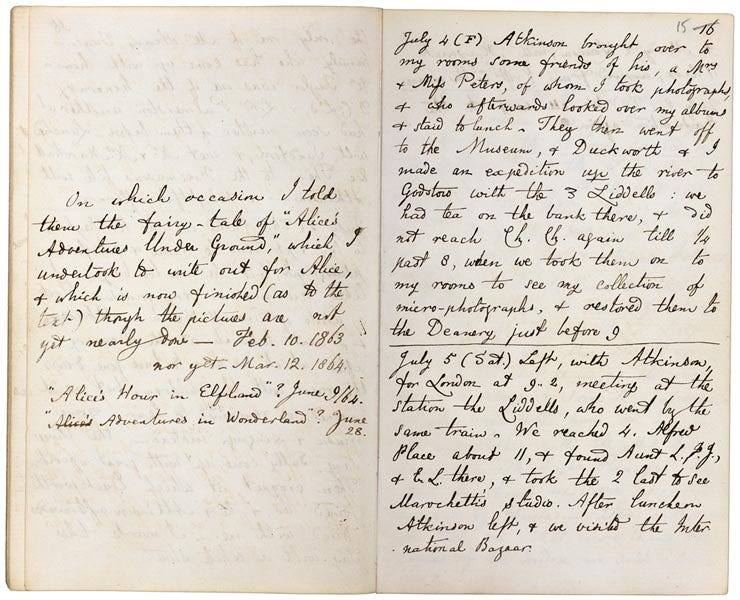 On which occasion I told
them the fairy-tale of "Alice's
Adventures Under Ground," which I
undertook to write out for Alice,
& which is now finished (as to the
text) though the pictures are not
yet nearly done — Feb. 10. 1863
nor yet — Mar. 12. 1864.
"Alice's Hour in Elfland"? June 9/64.
"Alice's Adventures in Wonderland"? June
28.
15 16
July 4 (F) Atkinson brought over to
my rooms some friends of his, a Mrs
& Miss Peters, of whom I took photographs,
& who afterwards looked over my albums
& staid to lunch. They then went off
to the Museum, & Duckworth & I
made an expedition up the river to
Godstow with the 3 Liddells: we
had tea on the bank there, & did
not reach Ch. Ch. again till ¼
past 8, when we took them on to
my rooms to see my collection of
micro-photographs, & restored them to
the Deanery, just before 9
July 5 (Sat.) Left, with Atkinson,
for London at 9.2, meeting at the
station the Liddells, who went by the
same train. We reached 4. Alfred
Place about 11, & found Aunt L., P.J.,
& E.L. there, & took the 2 last to see
Marochetti's studio. After luncheon
Atkinson left, & we visited the Inter
national Bazaar.